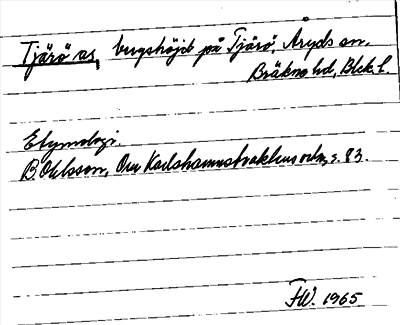 Tjärö as, bergshöjd på Tjärö, Åryds sn.
Bräkne hd, Blek. l.
Etymologi.
B. Ohlsson, Om Karlshamnstraktens s. 83.
FW. 1965